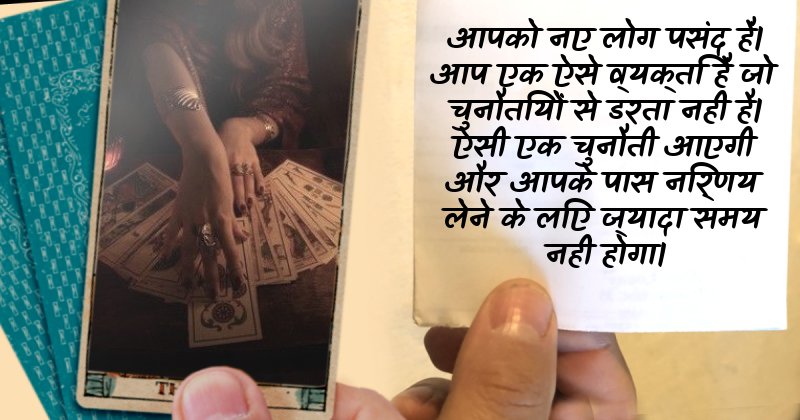 आपको नए लोग पसंद है।
आप एक ऐसे व्यक्ति है जो
चुनौतियों से डरता नही है।
ऐसी एक चुनौती आएगी
और आपके पास निर्णय
लेने के लिए ज्यादा समय
नही होगा।